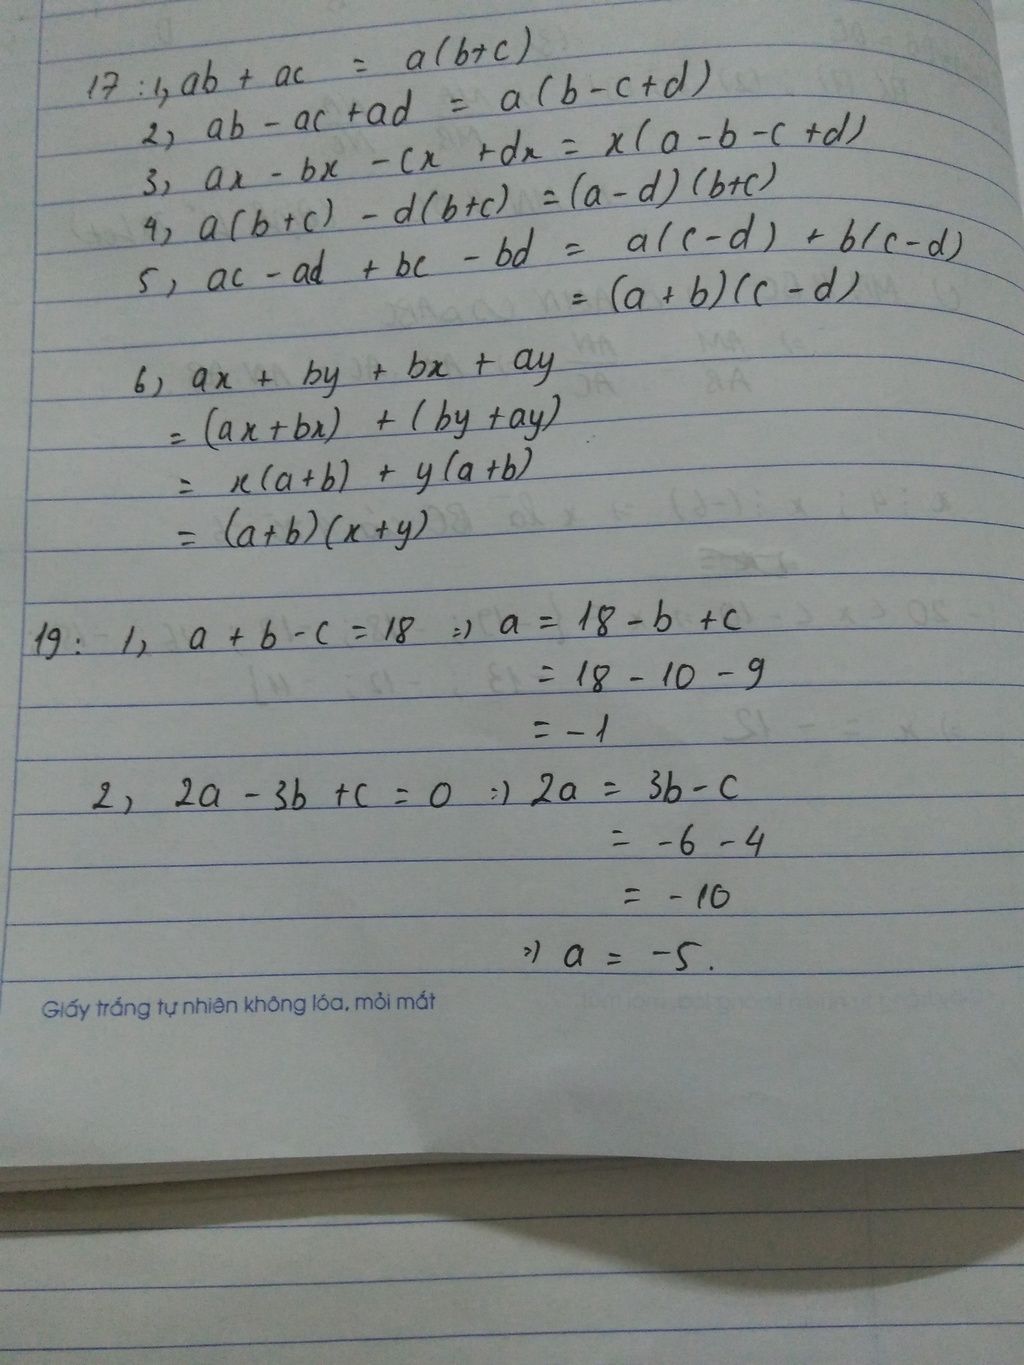 17 : 1, ab + ac = a(b+c)
2, ab - ac + ad = a(b-c+d)
3, ax - bx - cx + dx = x(a-b-c+d)
4, a(b+c) - d(b+c) = (a-d)(b+c)
5, ac - ad + bc - bd = a(c-d) + b(c-d)
= (a+b)(c-d)
6, ax + by + bx + ay
= (ax+bx) + (by+ay)
= x(a+b) + y(a+b)
= (a+b)(x+y)
19: 1, a + b - c = 18 => a = 18 - b + c
= 18 - 10 - 9
= -1
2, 2a - 3b + c = 0 => 2a = 3b - c
= -6 - 4
= -10
=> a = -5.
Giấy trắng tự nhiên không lóa, mỏi mắt